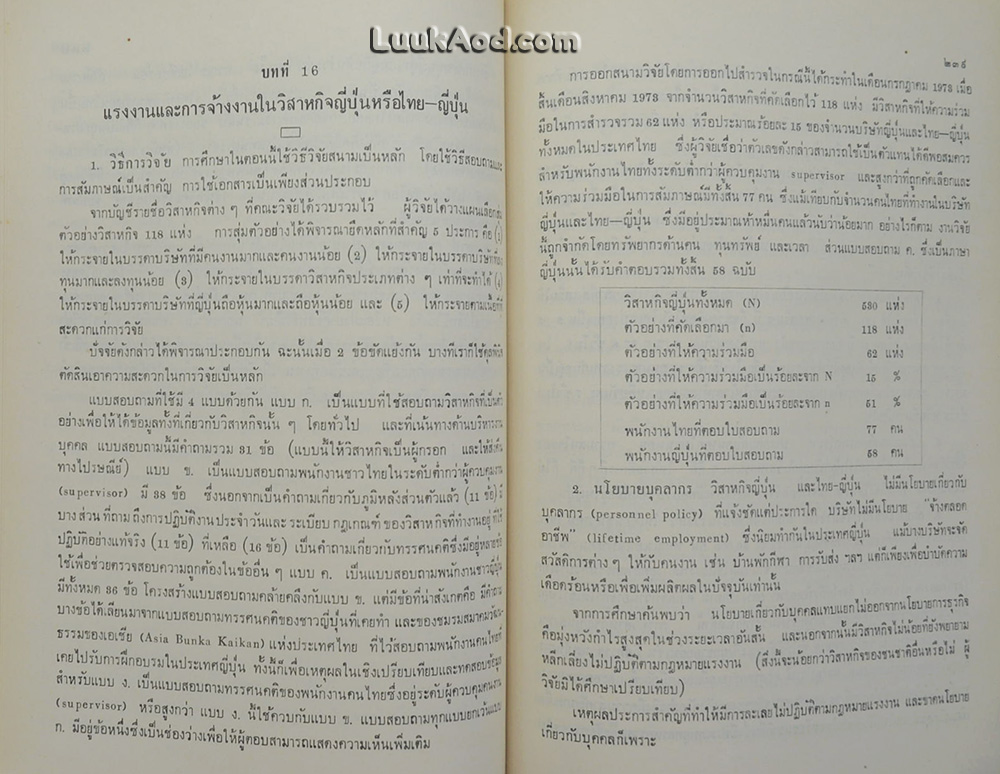 LuukAod.com
บทที่ 16
แรงงานและการจ้างงานในวิสาหกิจญี่ปุ่นหรือไทย–ญี่ปุ่น
1. วิธีการวิจัย การศึกษาในตอนนี้ใช้วิธีวิจัยสนามเป็นหลัก โดยใช้วิธีสอบถามและ
การสัมภาษณ์เป็นสำคัญ การใช้เอกสารเป็นเพียงส่วนประกอบ
จากบัญชีรายชื่อวิสาหกิจต่าง ๆ ที่คณะวิจัยได้รวบรวมไว้ ผู้วิจัยได้วางแผนเลือกสุ่ม
ตัวอย่างวิสาหกิจ 118 แห่ง การสุ่มตัวอย่างได้พิจารณายึดหลักที่สำคัญ 5 ประการ คือ (1)
ให้กระจายในบรรดาบริษัทที่มีคนงานมากและคนงานน้อย (2) ให้กระจายในบรรดาบริษัทที่
ทุนมากและลงทุนน้อย (3) ให้กระจายในบรรดาวิสาหกิจประเภทต่าง ๆ เท่าที่จะทำได้ (4)
ให้กระจายในบรรดาบริษัทที่ญี่ปุ่นถือหุ้นมากและถือหุ้นน้อย และ (5) ให้กระจายตามเนื้อที่ที่
สะดวกแก่การวิจัย
ปัจจัยดังกล่าวได้พิจารณาประกอบกัน ฉะนั้นเมื่อ 2 ข้อขัดแย้งกัน บางทีเราก็ใช้ดุลพินิจ
ตัดสินเอาความสะดวกในการวิจัยเป็นหลัก
แบบสอบถามที่ใช้มี 4 แบบด้วยกัน แบบ ก. เป็นแบบที่ใช้สอบถามวิสาหกิจที่เป็นตัว
อย่างเพื่อให้ได้ข้อมูลทั้งที่เกี่ยวกับวิสาหกิจนั้น ๆ โดยทั่วไป และที่เน้นทางด้านบริหารงาน
บุคคล แบบสอบถามนี้มีคำถามรวม 31 ข้อ (แบบนี้ให้วิสาหกิจเป็นผู้กรอก และให้ส่งคืน
ทางไปรษณีย์) แบบ ข. เป็นแบบสอบถามพนักงานชาวไทยในระดับต่ำกว่าผู้ควบคุมงาน
(supervisor) มี 38 ข้อ ซึ่งนอกจากเป็นคำถามเกี่ยวกับภูมิหลังส่วนตัวแล้ว (11 ข้อ) มี
บางส่วน ที่ถาม ถึงการปฏิบัติงานประจำวันและ ระเบียบ กฎเกณฑ์ ของวิสาหกิจที่ทำงานอยู่ ที่ใช้
ปฏิบัติอย่างแท้จริง (11 ข้อ) ที่เหลือ (16 ข้อ) เป็นคำถามเกี่ยวกับทรรศนคติซึ่งมีอยู่หลายข้อ
ใช้เพื่อช่วยตรวจสอบความถูกต้องในข้ออื่น ๆ แบบ ค. เป็นแบบสอบถามพนักงานชาวญี่ปุ่น
มีทั้งหมด 36 ข้อ โครงสร้างแบบสอบถามคล้ายคลึงกับแบบ ข. แต่มีข้อที่น่าสังเกตคือ มีคำถาม
บางข้อได้เลียนมาจากแบบสอบถามทรรศนคติของชาวญี่ปุ่นที่เคยทำ และของชมรมสมาคมวัฒน
ธรรมของเอเชีย (Asia Bunka Kaikan) แห่งประเทศไทย ที่ไว้สอบถามพนักงานคนไทยที่
เคยไปรับการฝึกอบรมในประเทศญี่ปุ่น ทั้งนี้ก็เพื่อเหตุผลในเชิงเปรียบเทียบและทดสอบข้อมูล
สำหรับแบบ ง. เป็นแบบสอบถามทรรศนคติของพนักงานคนไทยซึ่งอยู่ระดับผู้ควบคุมคนงาน
(supervisor) หรือสูงกว่า แบบ ง. นี้ใช้ควบกับแบบ ข. แบบสอบถามทุกแบบยกเว้นแบบ
ก. มีอยู่ข้อหนึ่งซึ่งเป็นช่องว่างเพื่อให้ผู้ตอบสามารถแสดงความเห็นเพิ่มเติม
๒๓๕
การออกสนามวิจัยโดยการออกไปสำรวจในกรณีนี้ได้กระทำในเดือนกรกฎาคม 1973 เมื่อ
สิ้นเดือนสิงหาคม 1973 จากจำนวนวิสาหกิจที่คัดเลือกไว้ 118 แห่ง มีวิสาหกิจที่ให้ความร่วม
มือในการสำรวจรวม 62 แห่ง หรือประมาณร้อยละ 15 ของจำนวนบริษัทญี่ปุ่นและไทย–ญี่ปุ่น
ทั้งหมดในประเทศไทย ซึ่งผู้วิจัยเชื่อว่าตัวเลขดังกล่าวสามารถใช้เป็นตัวแทนได้ดีพอสมควร
สำหรับพนักงานไทยทั้งระดับต่ำกว่าผู้ควบคุมงาน supervisor และสูงกว่าที่ถูกคัดเลือกและ
ให้ความร่วมมือในการสัมภาษณ์มีทั้งสิ้น 77 คน ซึ่งแม้เทียบกับจำนวนคนไทยที่ทำงานในบริษัท
ญี่ปุ่นและไทย–ญี่ปุ่น ซึ่งมีอยู่ประมาณห้าหมื่นคนแล้วนับว่าน้อยมาก อย่างไรก็ตาม งานวิจัย
นี้ถูกจำกัดโดยทรัพยากรด้านคน ทุนทรัพย์ และเวลา ส่วนแบบสอบถาม ค. ซึ่งเป็นภาษา
ญี่ปุ่นนั้นได้รับคำตอบรวมทั้งสิ้น 58 ฉบับ
วิสาหกิจญี่ปุ่นทั้งหมด (N) 530 แห่ง
ตัวอย่างที่คัดเลือกมา (n) 118 แห่ง
ตัวอย่างที่ให้ความร่วมมือ 62 แห่ง
ตัวอย่างที่ให้ความร่วมมือเป็นร้อยละจาก N 15 %
ตัวอย่างที่ให้ความร่วมมือเป็นร้อยละจาก n 51 %
พนักงานไทยที่ตอบใบสอบถาม 77 คน
พนักงานญี่ปุ่นที่ตอบใบสอบถาม 58 คน
2. นโยบายบุคลากร วิสาหกิจญี่ปุ่น และไทย-ญี่ปุ่น ไม่มีนโยบายเกี่ยวกับ
บุคลากร (personnel policy) ที่แจ้งชัดแต่ประการใด บริษัทไม่มีนโยบาย “จ้างตลอด
อาชีพ” (lifetime employment) ซึ่งนิยมทำกันในประเทศญี่ปุ่น แม้บางบริษัทจะจัด
สวัสดิการต่าง ๆ ให้กับคนงาน เช่น บ้านพักกีฬา การรับส่ง ฯลฯ แต่ก็เพียงเพื่อบำบัดความ
เดือดร้อนหรือเพื่อเพิ่มผลิตผลในปัจจุบันเท่านั้น
จากการศึกษาค้นพบว่า นโยบายเกี่ยวกับบุคคลแทบแยกไม่ออกจากนโยบายการธุรกิจ
คือมุ่งหวังกำไรสูงสุดในช่วงระยะเวลาอันสั้น และนอกจากนั้นมีวิสาหกิจไม่น้อยที่ยังพยายาม
หลีกเลี่ยงไม่ปฏิบัติตามกฎหมายแรงงาน (สิ่งนี้จะน้อยกว่าวิสาหกิจของชนชาติอื่นหรือไม่ ผู้
วิจัยมิได้ศึกษาเปรียบเทียบ)
เหตุผลประการสำคัญที่ทำให้มีการละเลยไม่ปฏิบัติตามกฎหมายแรงงาน และขาดนโยบาย
เกี่ยวกับบุคคลก็เพราะ